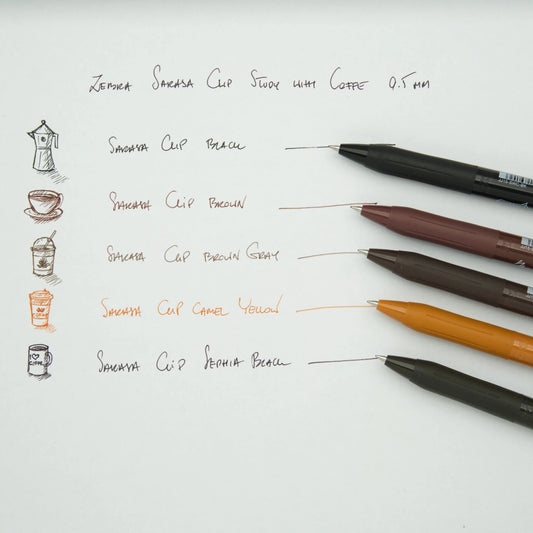 Zebra Sarasa Clip Study with Coffe 0.5 mm
Sarasa Clip Black
Sarasa Clip Brown
Sarasa Clip Brown Gray
Sarasa Clip Camel Yellow
I ♥ COFFE
Sarasa Clip Sephia Black